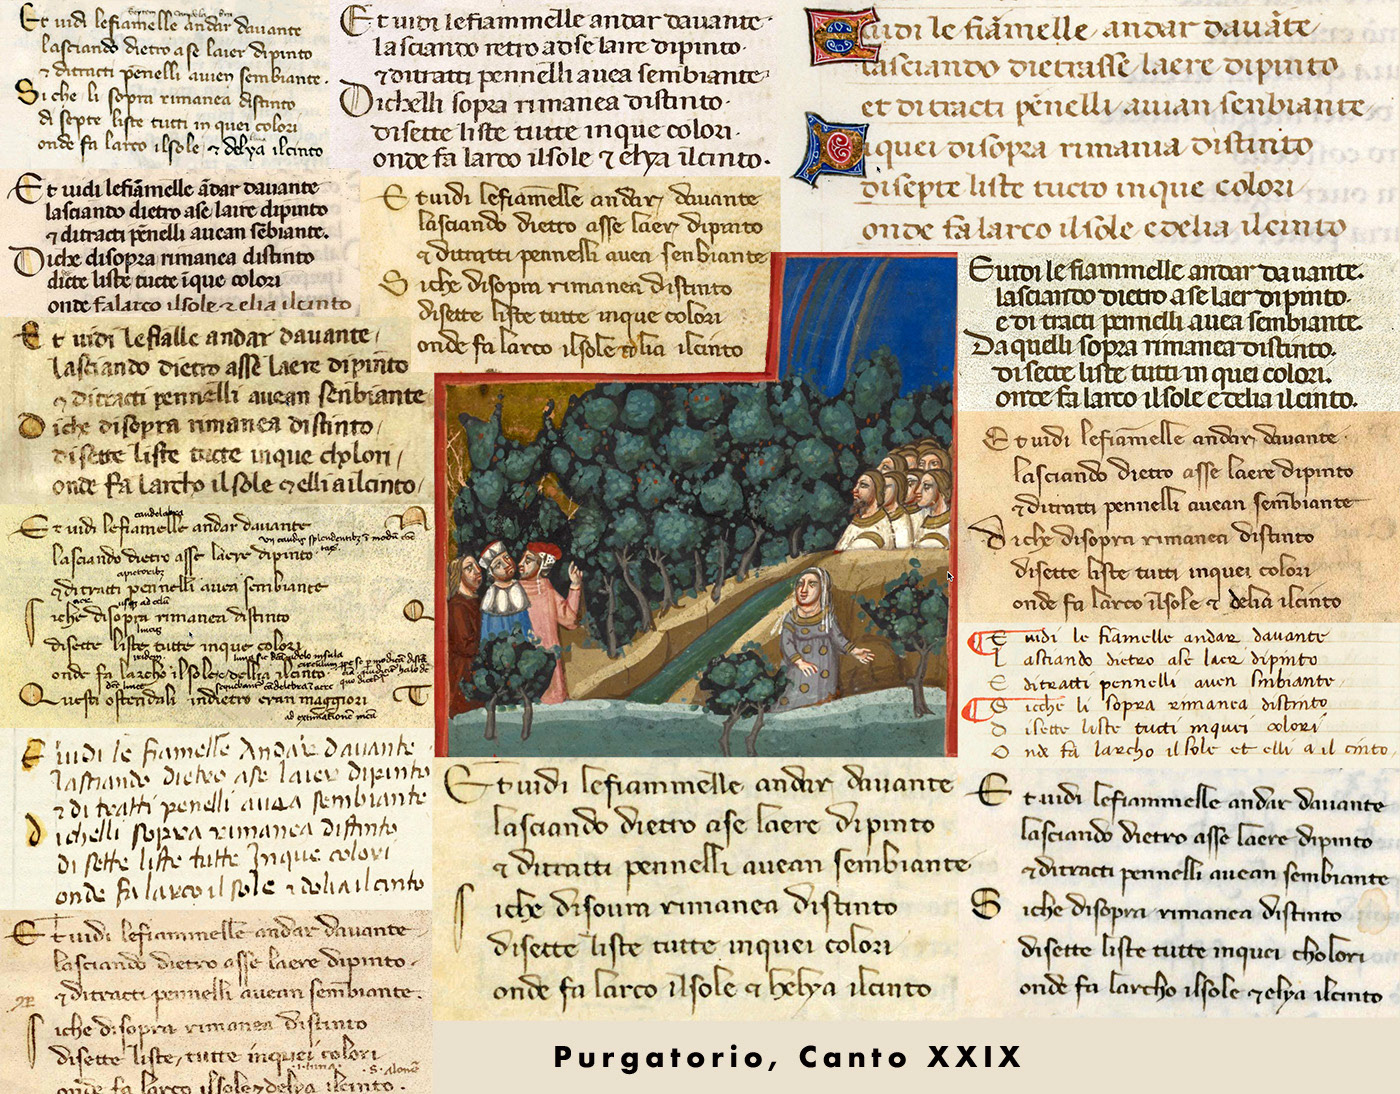 Et uidi le fiamelle andar dauante
lasciando dietro a se laier dipinto
⁊ di tracti penelli auien sembiante.
Si che li sopra rimanea distinto
di septe liste tutti in quei colori
onde fa larco il sole ⁊ delya il cinto
Et uidi le fiammelle andar dauante.
lasciando retro adse laire dipinto.
⁊ ditratti pennelli auea sembiante.
Dichelli sopra rimanea distinto.
disette liste tutte inque colori.
onde fa larco ilsole ⁊ elya ilcinto.
Euidi le fiãmelle andar dauãte
lasciando dietrasse laere dipinto
et di tracti pẽnelli auian senbiante
Diquei disopra rimania distinto
disepte liste tucto inque colori
onde fa larco il sole e delia il cinto
Et uidi lefiãmelle ãdar dauante
lasciando dietro ase laire dipinto
⁊ ditracti pẽnelli auean sẽbiante.
Diche disopra rimanea distinto
dicte liste tucte ĩque colori
onde fa larco ilsole ⁊ elia ilcinto
Et uidi lefiamelle andar dauante
lasciando dietro asse laer dipinto
⁊ ditratti pennelli auea senbiante
Siche disopra rimanea distinto
disette liste tutte inque colori
onde fa larco ilsole ilcinto
Euidi le fiammelle andar dauante.
lasciando dietro a se laer dipinto.
e di tracti pennelli auea sembiante.
Da quelli sopra rimanea distinto.
di secte liste tutti in quei colori.
onde fa larco il sole e delia il cinto.
Et uidi le fialle andar dauante
lasciando dietro asse laere dipinto
⁊ ditracti pennelli auean senbiante
Diche disopra rimanea distinto
disette liste tucte inque cholori
onde fa larcho ilsole ⁊ elli a ilcinto
Et uidi lefiamelle andar dauante
lasciando dietro asse laere dipinto
⁊ ditratti pennelli auean sembiante
Siche disopra rimanea distinto
disette liste tutti inquei colori
onde fa larco ilsole ⁊ delia ilcinto
Et uidi lefiamelle andar dauante
lasciando dietro asse laere dipinto
⁊ ditratti pennelli auea sembiante
siche disopra rimanea distinto
disette liste tutte inque colori
onde fa larcho ilsole dellia ilcinto
Questi ostendali indietro eran maggiori
Euidi le fiamelle andar dauante
Lasciando dietro ase laer dipinto
E ditratti pennelli auen sinbiante
Sicche li sopra rimanea distinto
disette liste tucti inquei colori
Onde fa larcho il sole et elli a il cinto
Euidi le fiamelle Andar dauante
lasciando dietro ase laier dipinto
⁊ di tratti penelli auea sembiante
dichelli sopra rimanea distinto
di sette liste tutte Inque colori
onde fa larco il sole ⁊ delia il cinto
Et uidi lefiammelle andar dauante
lasciando dietro ase laere dipinto
⁊ ditratti pennelli auean sembiante
siche disoura rimanea distinto
disette liste tutte inquei colori
onde fa larco ilsole & helya ilcinto
Et uidi lefiammelle andar dauante
lasciando dietro asse laere dipinto
⁊ ditracti pennelli auean sembiante
Siche disopra rimanea distinto
disette liste tutte inquei cholori
onde fa larcho ilsole ⁊ elya ilcinto
Et uidi lefiammelle andar dauante
lasciando dietro asse laere dipinto.
⁊ ditracti pennelli auean sembiante.
siche disopra rimanea distinto
disette liste tutte inquei colori
onde fa larco ilsole ⁊ delya ilcinto.
Purgatorio, Canto XXIX